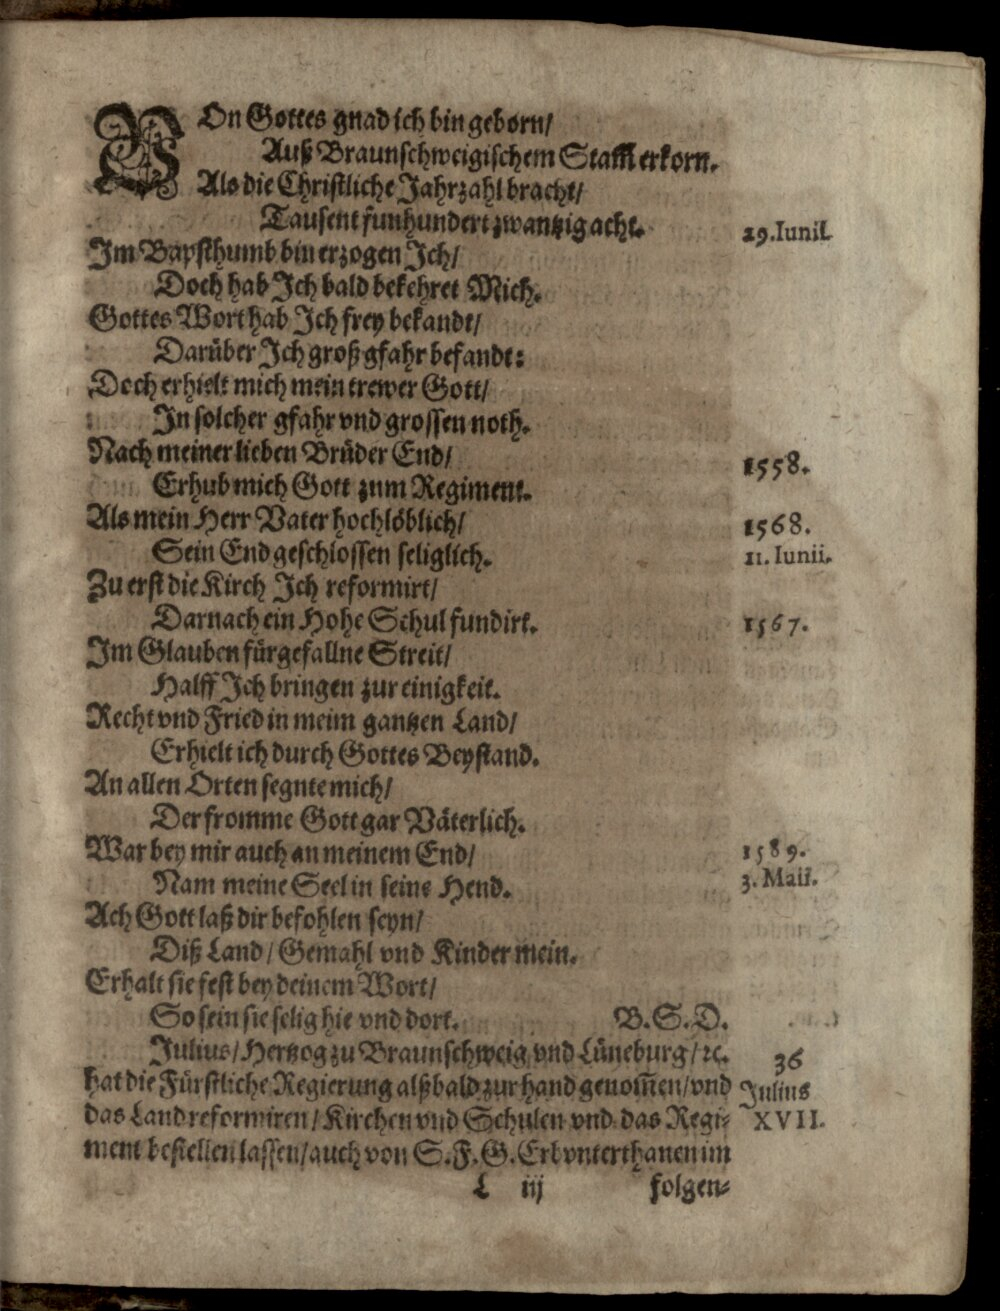 VOn Gottes gnad ich bin geborn/
Auß Braunschweigischem Stam̃ erkorn.
Als die Christliche Jahrzahl bracht/
Tausent funhundert zwantzig acht. 29. Iunii.
Im Bapsthumb bin erzogen Ich/
Doch hab Ich bald bekehret Mich.
Gottes Wort hab Ich frey bekandt/
Darüber Ich groß gfahr befandt:
Doch erhielt mich mein trewer Gott/
In solcher gfahr vnd grossen noth.
Nach meiner lieben Brüder End/
Erhub mich Gott zum Regiment. 1558.
Als mein Herr Vater hochlöblich/ 1568.
Sein End geschlossen seliglich. 11. Iunii.
Zu erst die Kirch Ich reformirt/
Darnach ein Hohe Schul fundirt. 1567.
Im Glauben fürgefallne Streit/
Halff Ich bringen zur einigkeit.
Recht vnd Fried in meim gantzen Land/
Erhielt ich durch Gottes Beystand.
An allen Orten segnte mich/
Der fromme Gott gar Väterlich.
War bey mir auch an meinem End/ 1589.
Nam meine Seel in seine Hend. 3. Maii.
Ach Gott laß dir befohlen seyn/
Diß Land/ Gemahl vnd Kinder mein.
Erhalt sie fest bey deinem Wort/
So sein sie selig hie vnd dort. B. S. D.
Julius/ Hertzog zu Braunschweig vnd Lüneburg/ ꝛc. 36
hat die Fürstliche Regierung alßbald zur hand genom̃en/ vnd Julius
das Land reformiren/ Kirchen vnd Schulen vnd das Regi- XVII.
ment bestellen lassen/ auch von S. F. G. Erbvnterthanen im
L iij folgen-